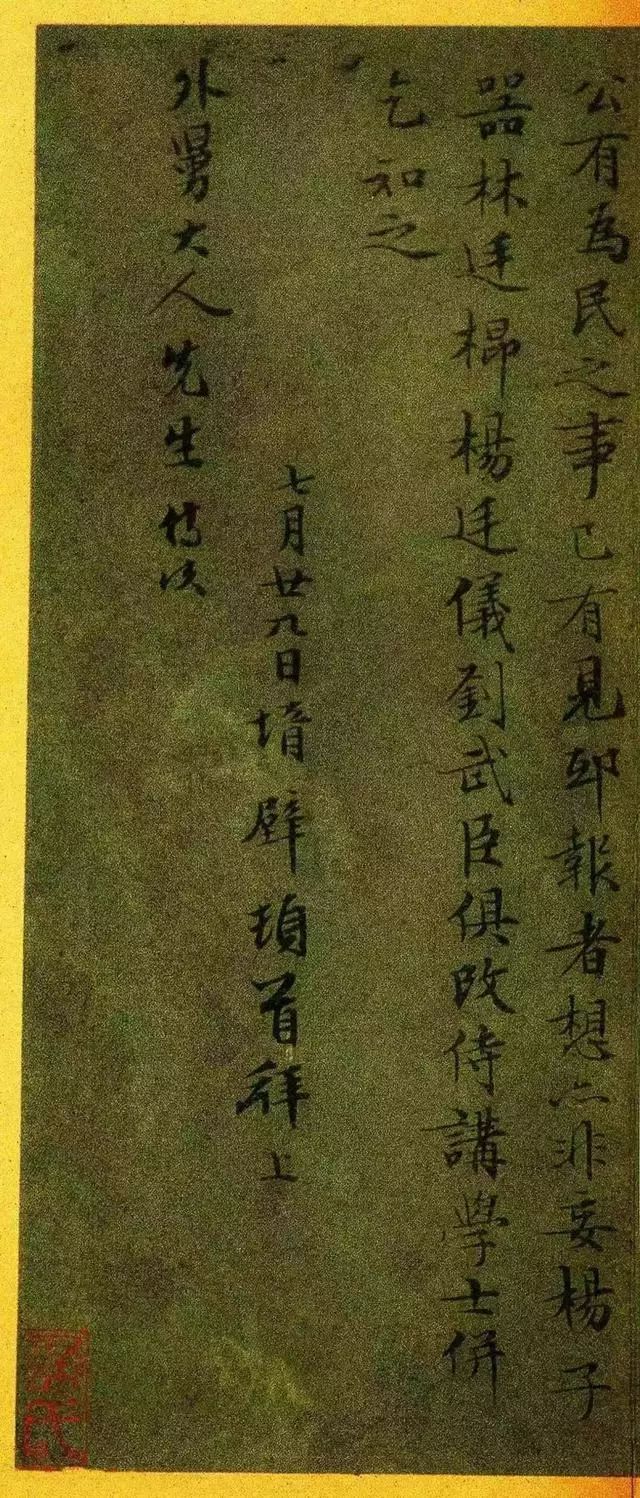 公有為民之事已有見邸報者想亦非妄楊子
器林廷㭿楊廷儀劉武臣俱改侍講學士併
乞知之
七月廿九日壻壁頓首拜上
外舅大人先生侍次